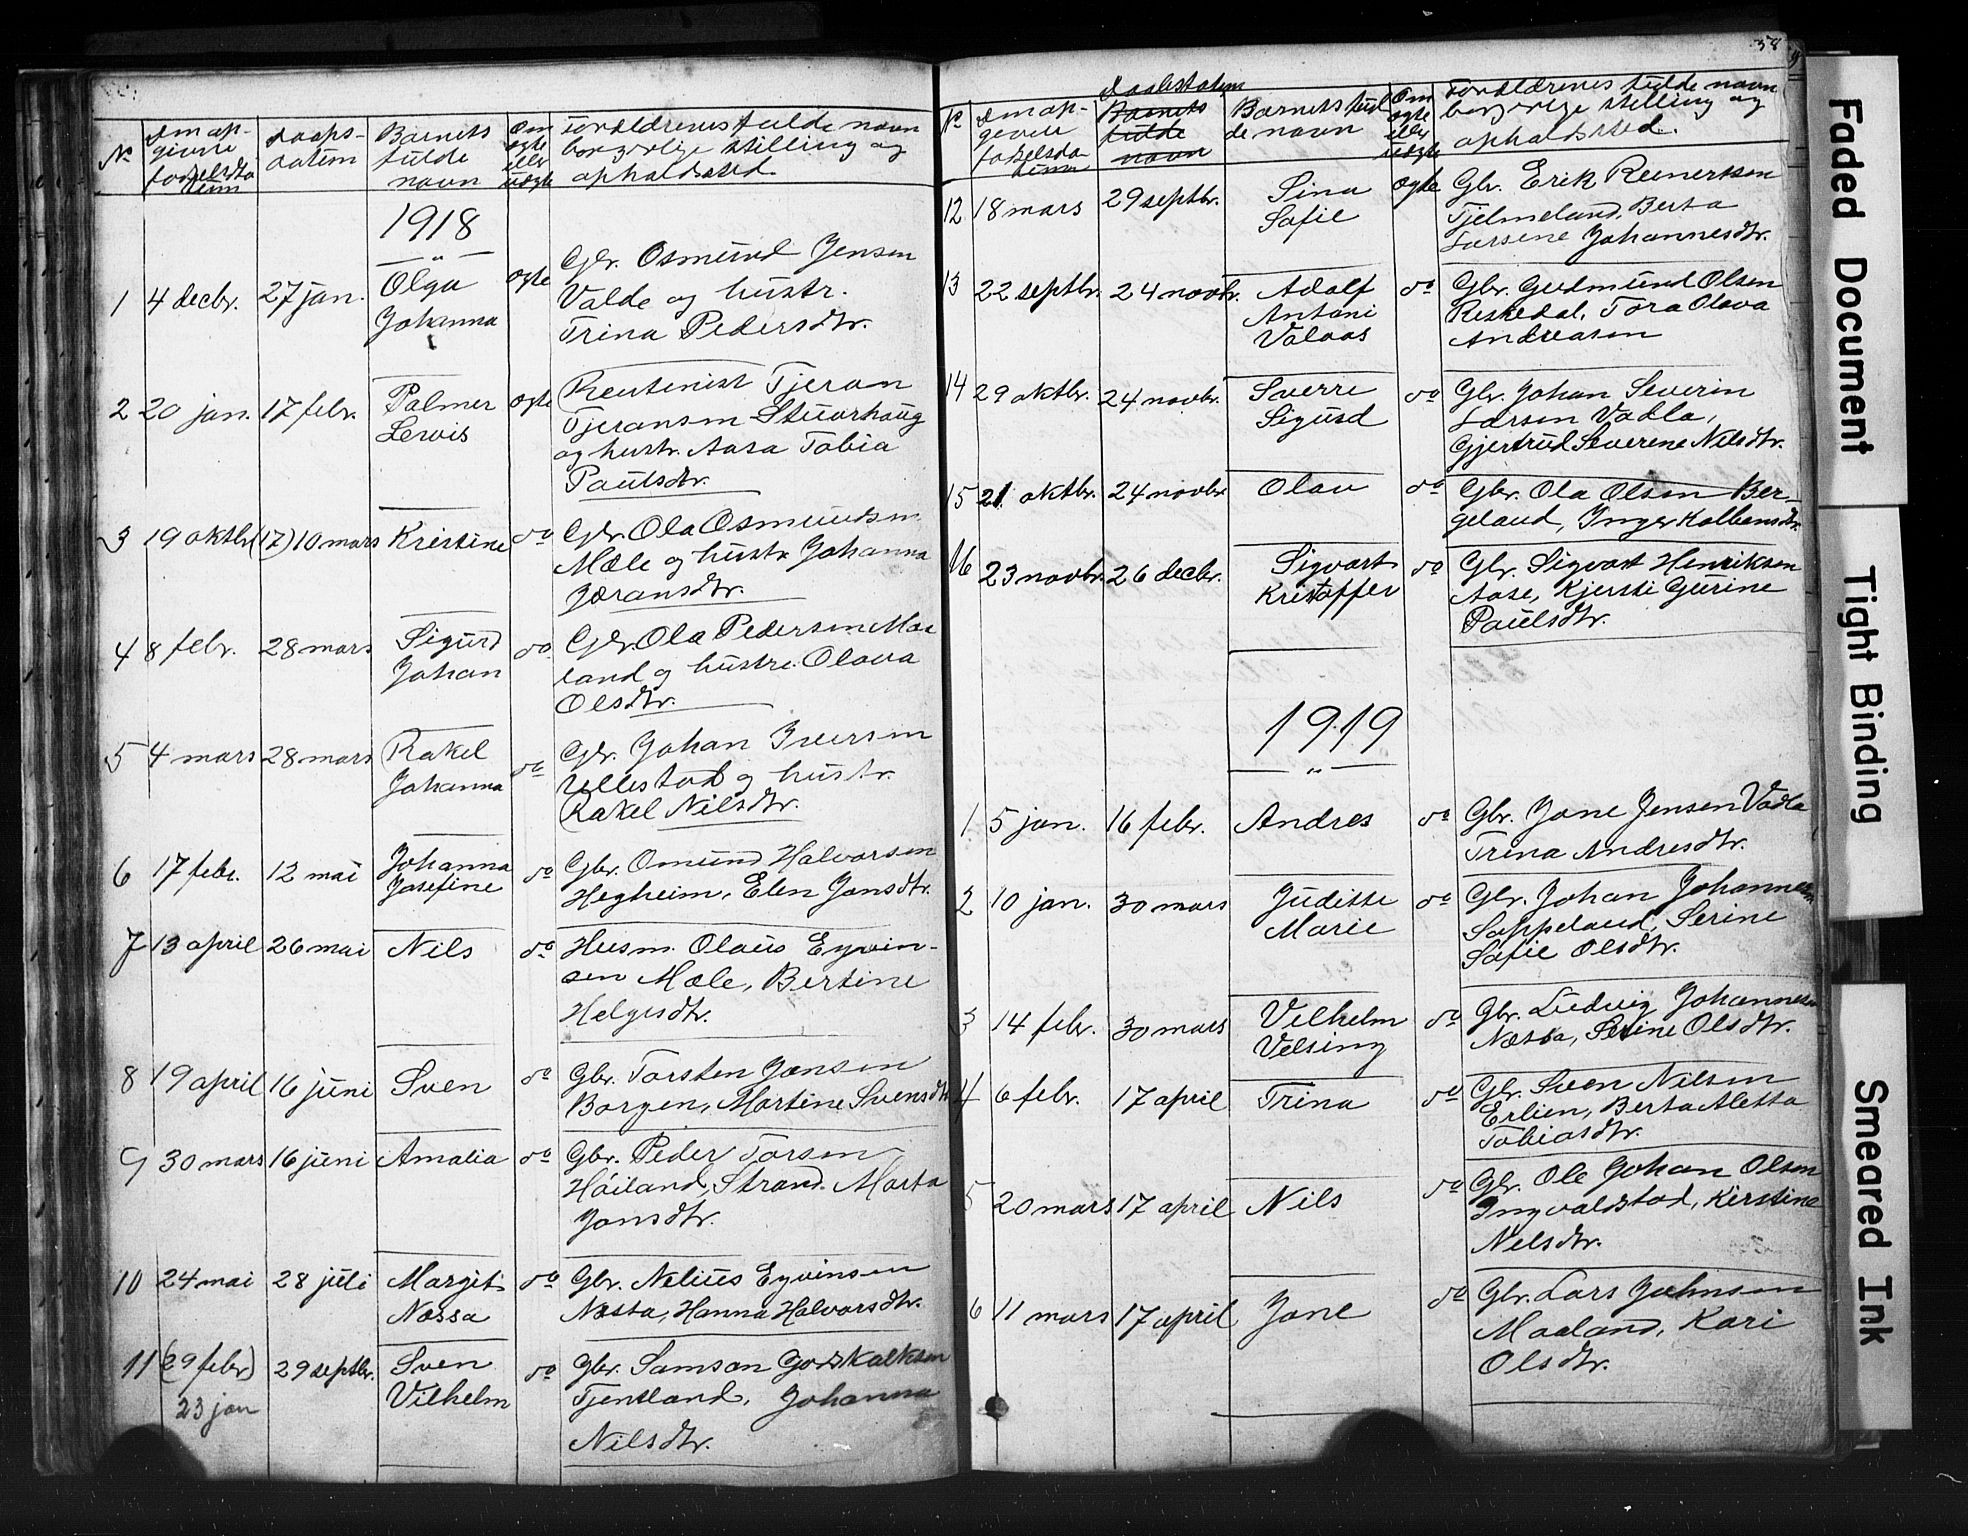 No
Em op-
givne
fødselsda
tum
Daaps-
datum
Barnets
fulde
navn
Om
egte
eller
uegte
Foreldrenes fulde navn
borgerlige stilling og
opholdssted.
1918
1 4 decbr. 27 jan. Olga
Johanna
egte
Gbr. Osmund Jensen
Valde og hustr.
Trina Pedersdtr.
2 20 jan. 17 febr. Palmer
Lewis
egte
Rentenist Tjeran
Tjeransen Stuvrhaug
og hustr. Aasa Tobia
Paulsdtr.
3 19 oktbr. (17) 10 mars Kristine do
Gbr Ola Osmundsen
Mæle og hustr Johanna
Jøransdtr.
4 8 febr. 28 mars Sigurd
Johan
do
Gbr Ola Pedersen Maa
land og hustru Olava
Olsdtr.
5 4 mars 28 mars Rakel
Johanna
do
Gbr. Johan Iversen
Ullestad og hustr.
Rakel Nilsdtr.
6 17 febr. 12 mai Johanna
Josefine
do
Gbr. Omund Halvorsen
Hegheim, Elen Jonsdtr.
7 13 april 26 mai Nils do
Husm. Olaus Eyvin-
sen Mæle, Bertine
Helgesdtr.
8 19 april 16 juni Sven do
Gbr. Torsten Jonsen
Borgen, Martine Svensdtr
9 30 mars 16 juni Amalia do
Gbr. Peder Torsen
Høiland, Strand. Marta
Jonsdtr.
10 24 mai 28 juli Margit
Næssa
do
Gbr. Nelius Eyvinsen
Næssa, Hanna Halvorsdtr.
11 (29 febr) 29 septbr. Sven
23 jan
Vilhelm
do
Gbr. Samson Godskalksen
Tjentland, Johanna
Nilsdtr.
58
No
Em op-
givne
fødselsda
tum
Daabsdatum
Barnets
fulde
navn
Barnets ful
de navn
Om
egte
eller
uegte
Foreldrenes fulde navn
borgerlige stilling og
opholdssted.
12 18 mars 29 septbr. Sina
Sofie
egte
Gbr. Erik Reinertsen
Tjelmeland, Berta
Larsene Johannesdtr.
13 22 septbr. 24 novbr. Adolf
Antoni
Valaas
do
Gbr. Gudmund Olsen
Reskedal, Tora Olava
Andreasen
14 29 oktbr. 24 novbr. Sverre
Sigurd
do
Gbr. Johan Severin
Larsen Vadla,
Gjertrud Severene Nilsdtr.
15 21 oktbr. 24 novbr. Olav do
Gbr. Ola Olsen Ber-
geland, Inger Kolbensdtr.
16 23 novbr. 26 decbr. Sigvart
Kristoffer
do
Gbr. Sigvart Henriksen
Aase, Kjersti Gurine
Paulsdtr.
1919
1 5 jan. 16 febr. Andres do
Gbr. Jone Jensen Vadla
Trina Andresdtr.
2 10 jan. 30 mars Juditte
Marie
do
Gbr. Johan Johannesen
Sappeland, Serine
Sofie Olsdtr.
3 14 febr. 30 mars Vilhelm
Velsing
do
Gbr. Ludvig Johannesen
Næssa, Serine Olsdtr.
4 6 febr. 17 april Trina do
Gbr. Sven Nilsen
Erlien, Berta Aletta
Tobiasdtr.
5 20 mars 17 april Nils do
Gbr. Ole Johan Olsen
Ingvaldstad, Kirstine
Nelsdtr.
6 11 mars 17 april Jone do
Gbr. Lars Johnsen
Maaland, Kari
Olsdtr.
Faded Document
Tight Binding
Smeared Ink